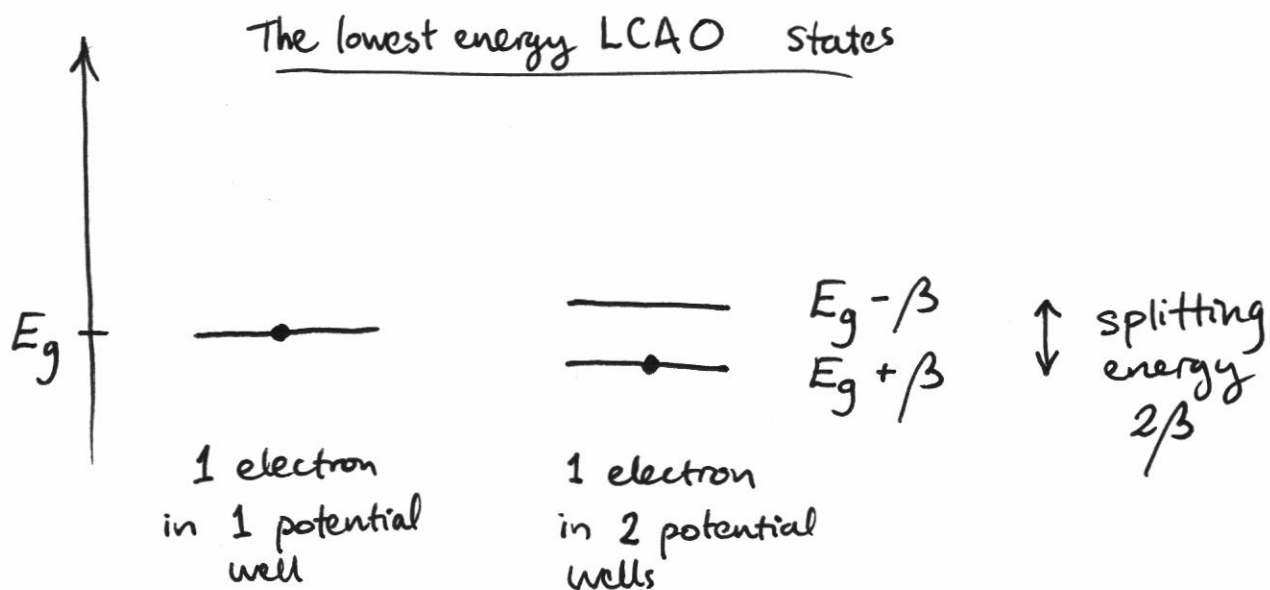 The lowest energy LCAO states
Eg
Eg - β
Eg + β
splitting
energy
2β
1 electron
in 1 potential
well
1 electron
in 2 potential
wells